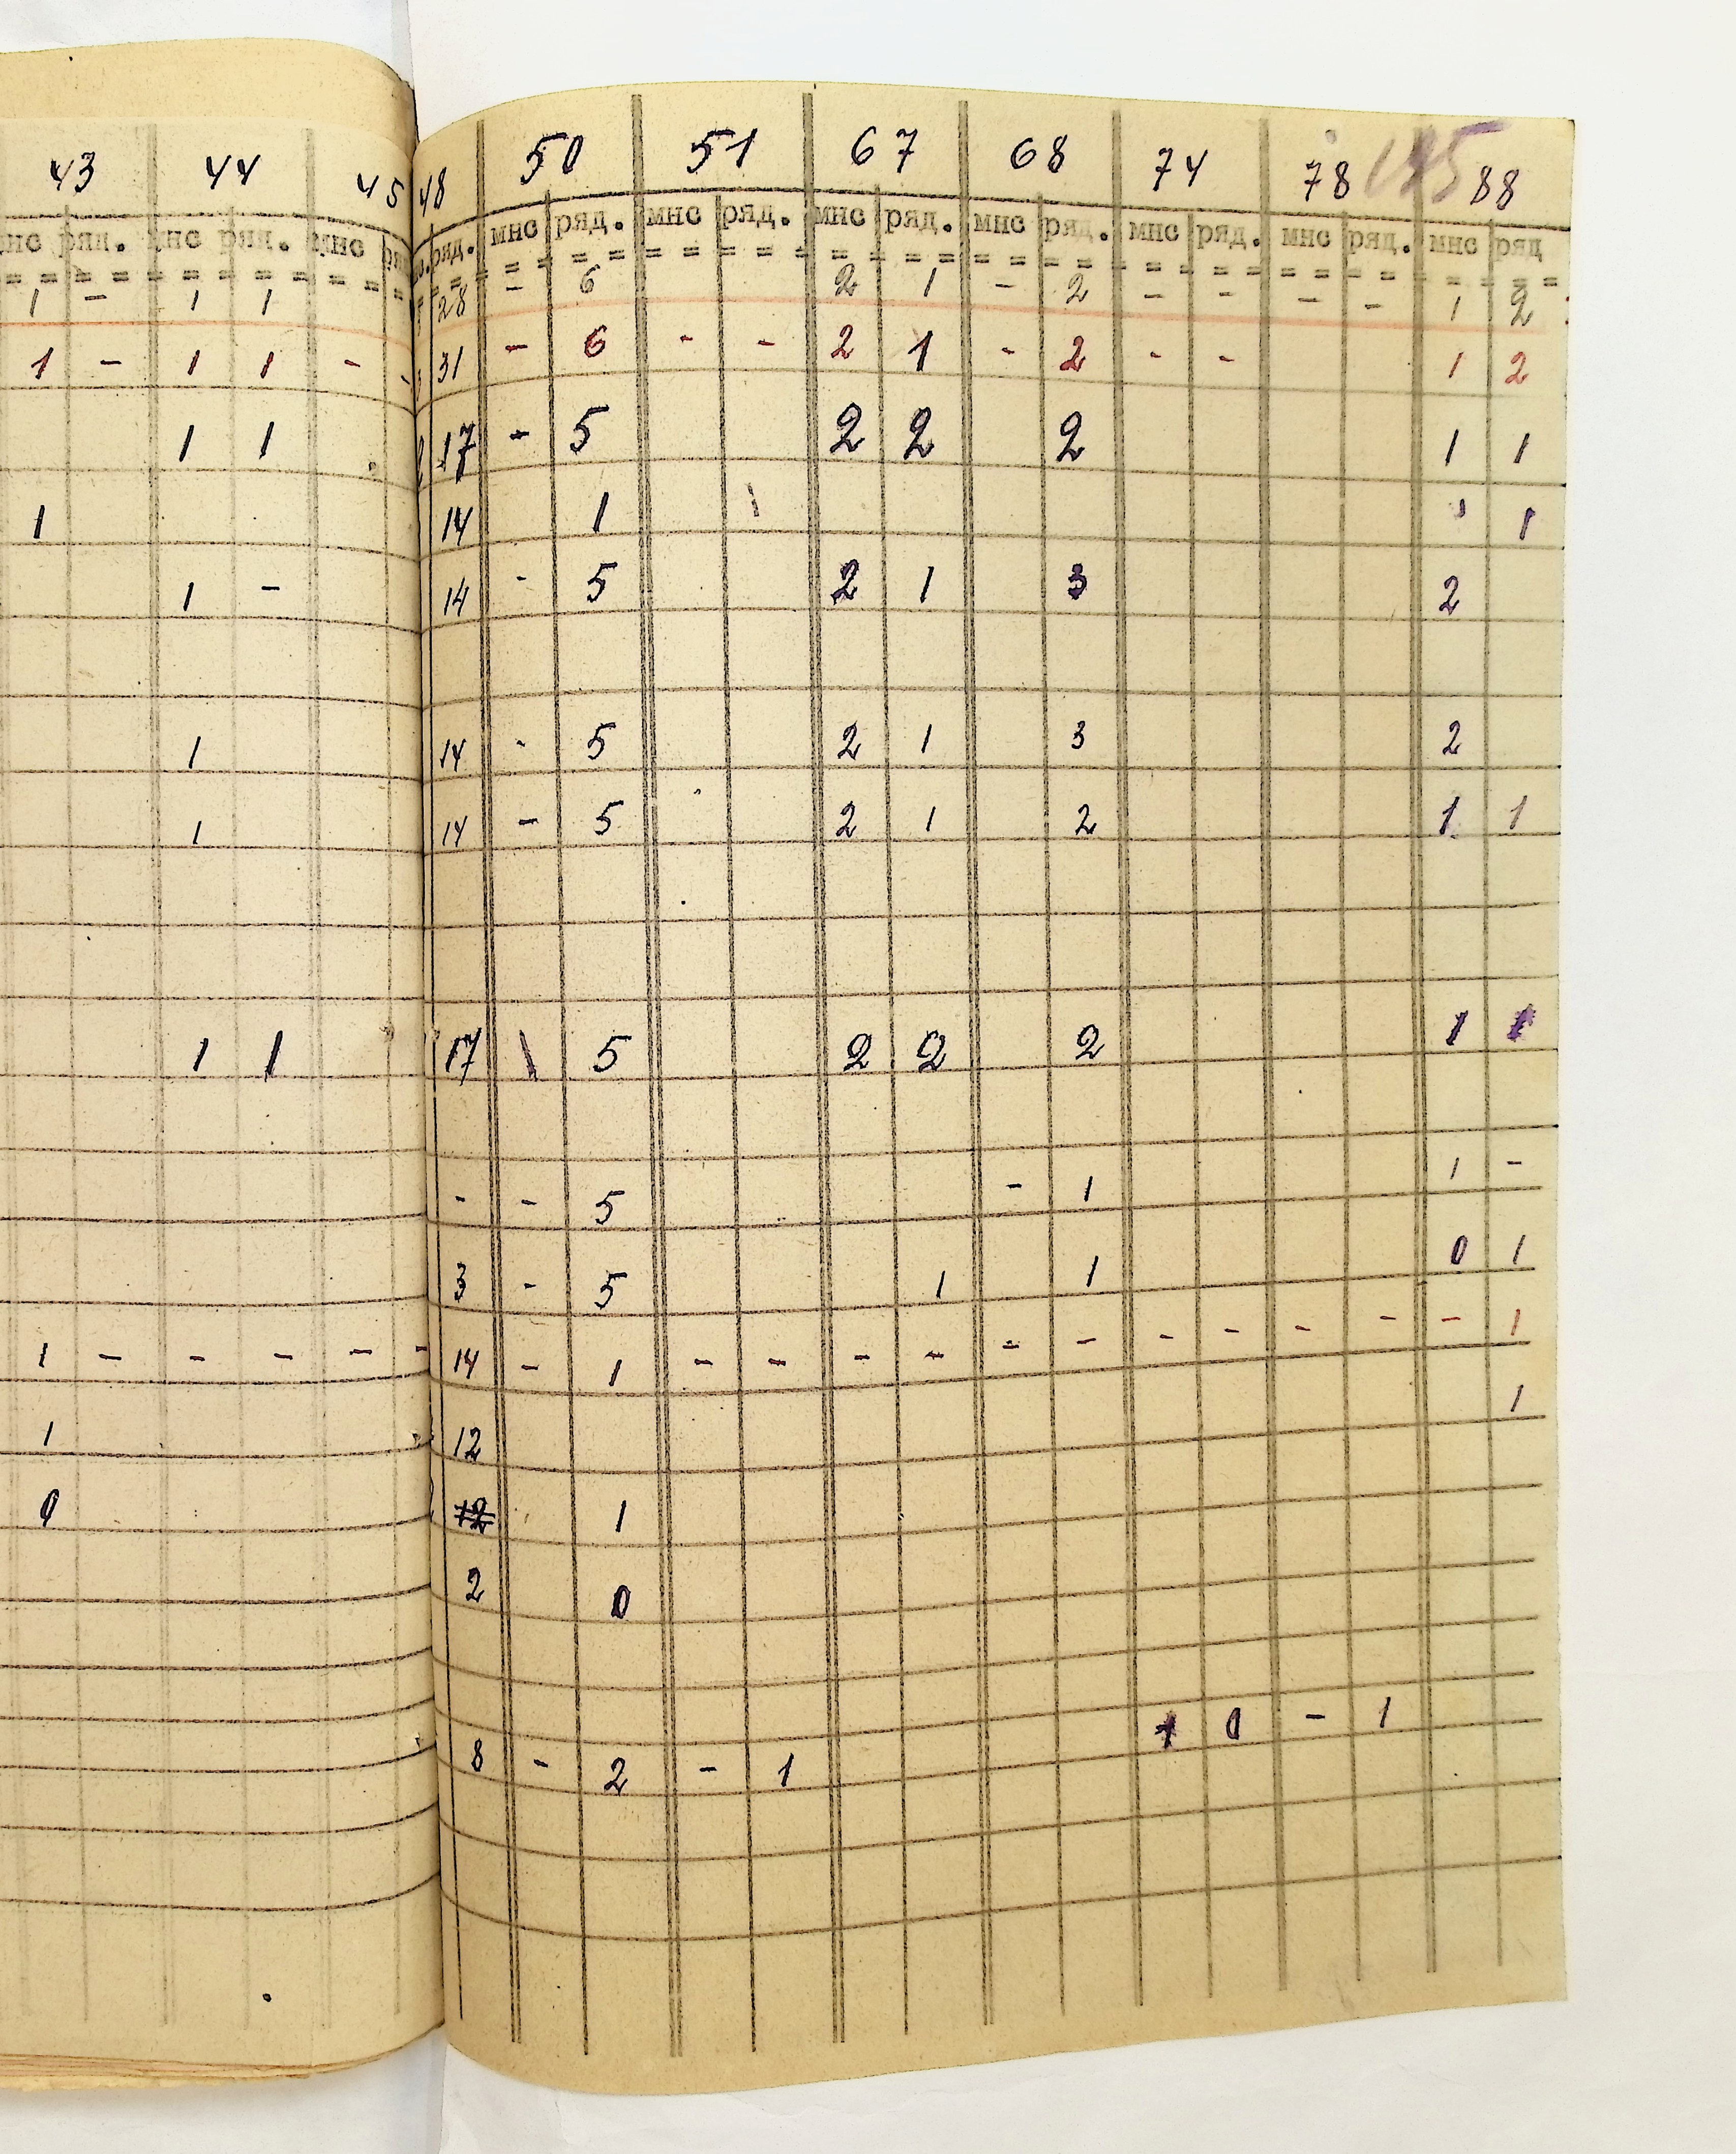 43 44 45 48 50 51 67 68 74 78 88
мнс ряд. мнс ряд. мнс ряд. мнс ряд. мнс ряд. мнс ряд. мнс ряд. мнс ряд. мнс ряд. мнс ряд
1 - 1 1 28 - 6 2 1 - 2 - - - - 1 2
1 - 1 1 - 31 - 6 - - 2 1 - 2 - - 1 2
1 1 17 - 5 2 2 2 1 1
1 14 1 1 1 1
1 - 14 - 5 2 1 3 2
1 14 - 5 2 1 3 2
1 14 - 5 2 1 2 1 1
1 1 17 1 5 2 2 2 1 1
- - 5 - 1 1 -
3 - 5 1 1 0 1
1 - - - - - 14 - 1 - - - - - - - - - - - 1
1 12 1
0 12 1
2 0
8 - 2 - 1 1 0 - 1